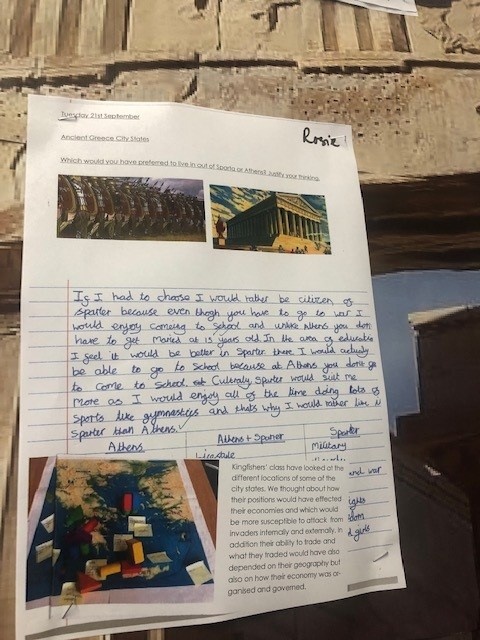 Tuesday 21st September
Rosie
Ancient Greece City States
Which would you have preferred to live in out of Sparta or Athens? Justify your thinking.
If I had to choose I would rather be citizen of
sparter because even thogh you have to go to war I
would enjoy comeing to School and unlike Athens you dont
have to get maried at 15 years old. In the area of education
I feel it would be better in Sparter there I would actualy
be able to go to School because at Athens you dont go
to come to School. Culeraly, Sparter would suit me
More as I would enjoy all of the time doing lots of
Sports like gymnastics and thats why I would rather live in
Sparter than Athens.
Athens
Athens + Sparter
Sparter
Military
and war
d girls
Kingfishers' class have looked at the
different locations of some of the
city states. We thought about how
their positions would have effected
their economies and which would
be more susceptible to attack from
invaders internally and externally. In
addition their ability to trade and
what they traded would have also
depended on their geography but
also on how their economy was or-
ganised and governed.